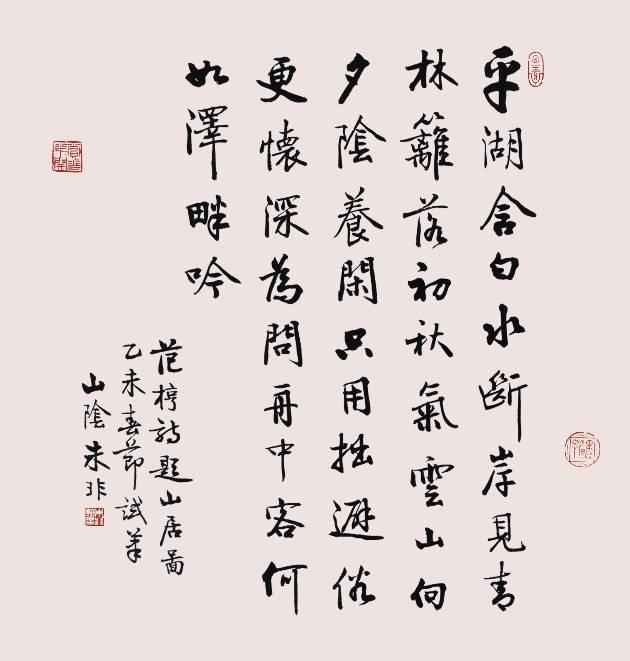 平湖含白水斷岸見青
林籬落初秋氣雲山向
夕陰養閑只用拙避俗
更懷深為問舟中客何
如澤畔吟
范梈詩題山居圖
乙未春節試筆
山陰朱非